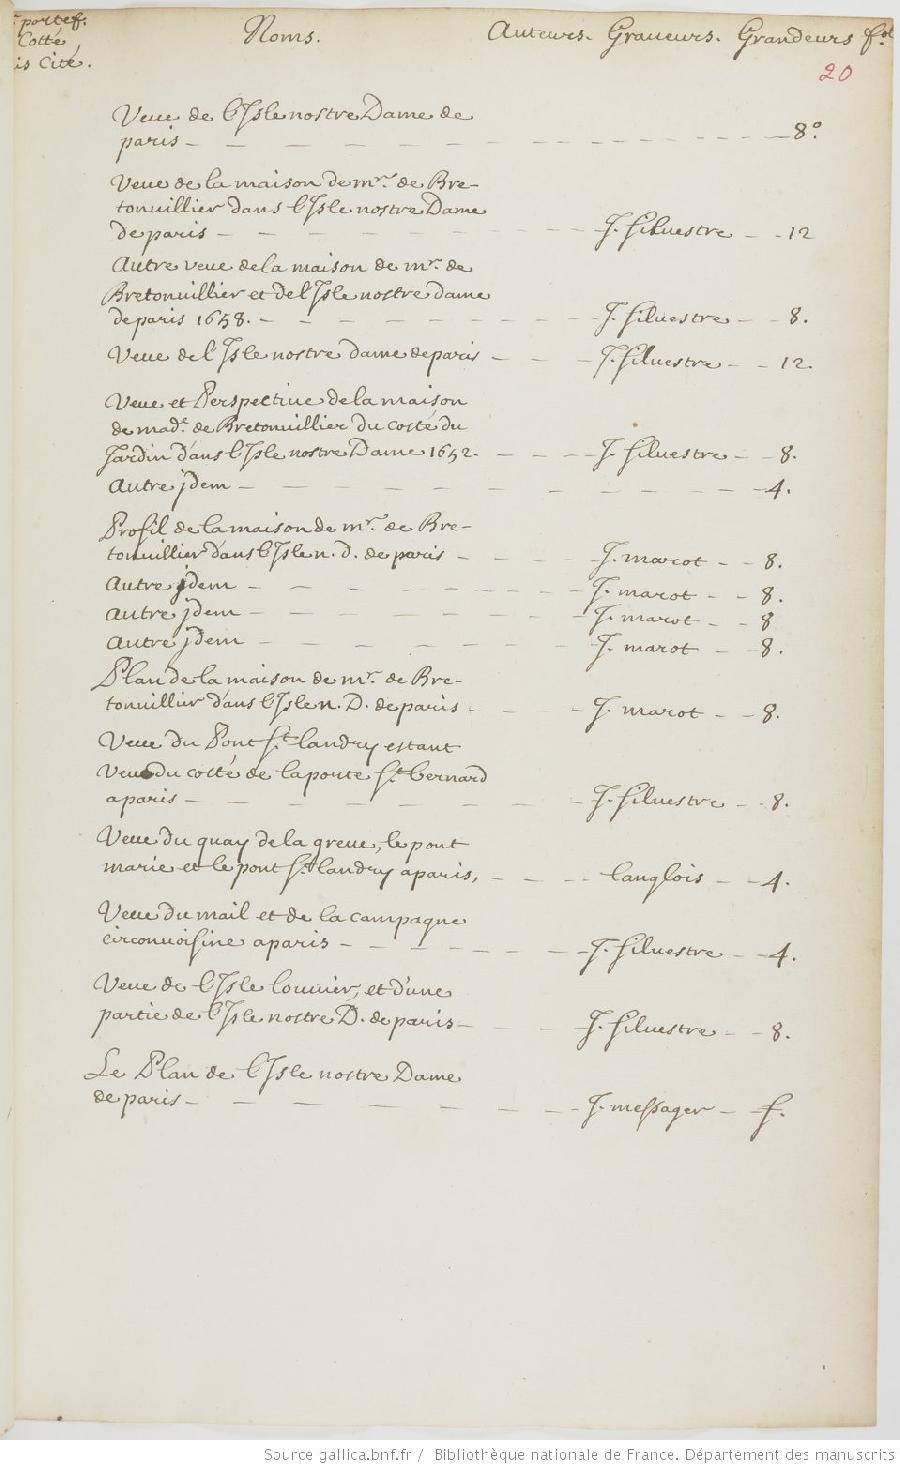 portef. Noms. Auteurs. Graueurs. Grandeurs fol
Cotté
is Cité.
20
Veue de l'Isle nostre Dame de
paris — 8°.
Veue de la maison de mr. de Bre-
tonuillier dans l'Isle nostre Dame
de paris — J. siluestre — 12
Autre veue de la maison de mr. de
Bretonuillier et de l'Isle nostre dame
de paris 1658. — J. siluestre — 8.
Veue de l'Isle nostre dame de paris — J. siluestre — 12.
Veue et Perspectiue de la maison
de made. de Bretonuillier du costé du
Jardin dans l'Isle nostre Dame 1652. — J. siluestre — 8.
Autre jdem — 4.
Profil de la maison de mr. de Bre-
tonuillier dans l'Isle n. D. de paris — J. marot — 8.
Autre jdem — J. marot — 8.
Autre jdem — J. marot — 8
Autre jdem — J. marot — 8.
Plan de la maison de mr. de Bre-
tonuillier dans l'Isle n. D. de paris — J. marot — 8.
Veue du Pont st. landry estant
veue du costé de la porte st. bernard
a paris — J. siluestre — 8.
Veue du quay de la greue, le pont
marie et le pont st. landry a paris, — langlois — 4.
Veue du mail et de la campagne
circonuoisine a paris — J. siluestre — 4.
Veue de l'Isle louuier, et d'une
partie de l'Isle nostre D. de paris — J. siluestre — 8.
Le Plan de l'Isle nostre Dame
de paris — J. messager — f.
Source gallica.bnf.fr / Bibliothèque nationale de France. Département des manuscrits